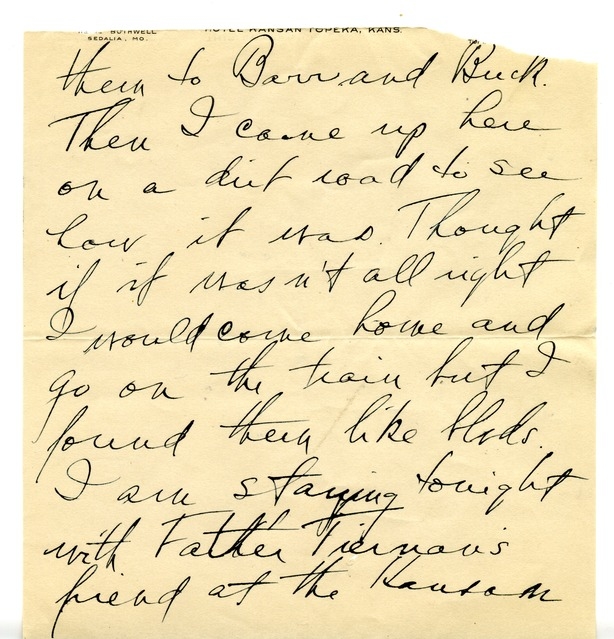 BOTHWELL
SEDALIA, MO.
HOTEL KANSAN TOPEKA, KANS.
them to Barr and Buck.
Then I came up here
on a dirt road to see
how it was. Thought
if it wasn't all right
I would come home and
go on the train but I
found them like blvds.
I am staying tonight
with Father Tiernan's
friend at the Kansan